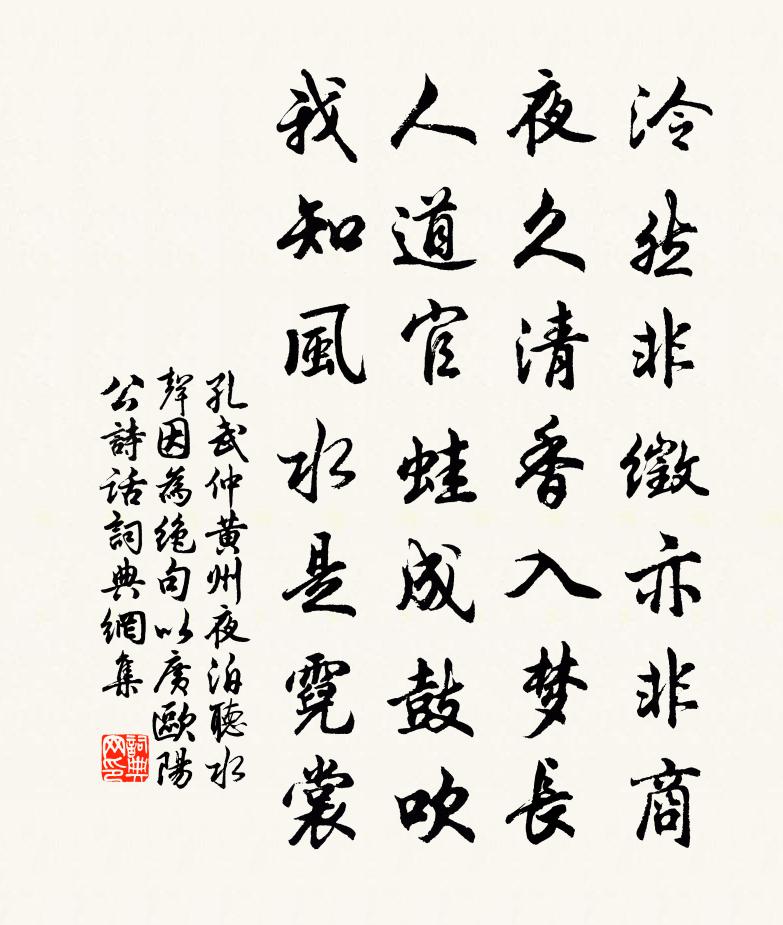 泠然非徵亦非商
夜久清香入梦長
人道官蛙成鼓吹
我知風水是霓裳
孔武仲黄州夜泊聽水
聲因為絶句以廣歐陽
公詩話詞典網集
詞典网印